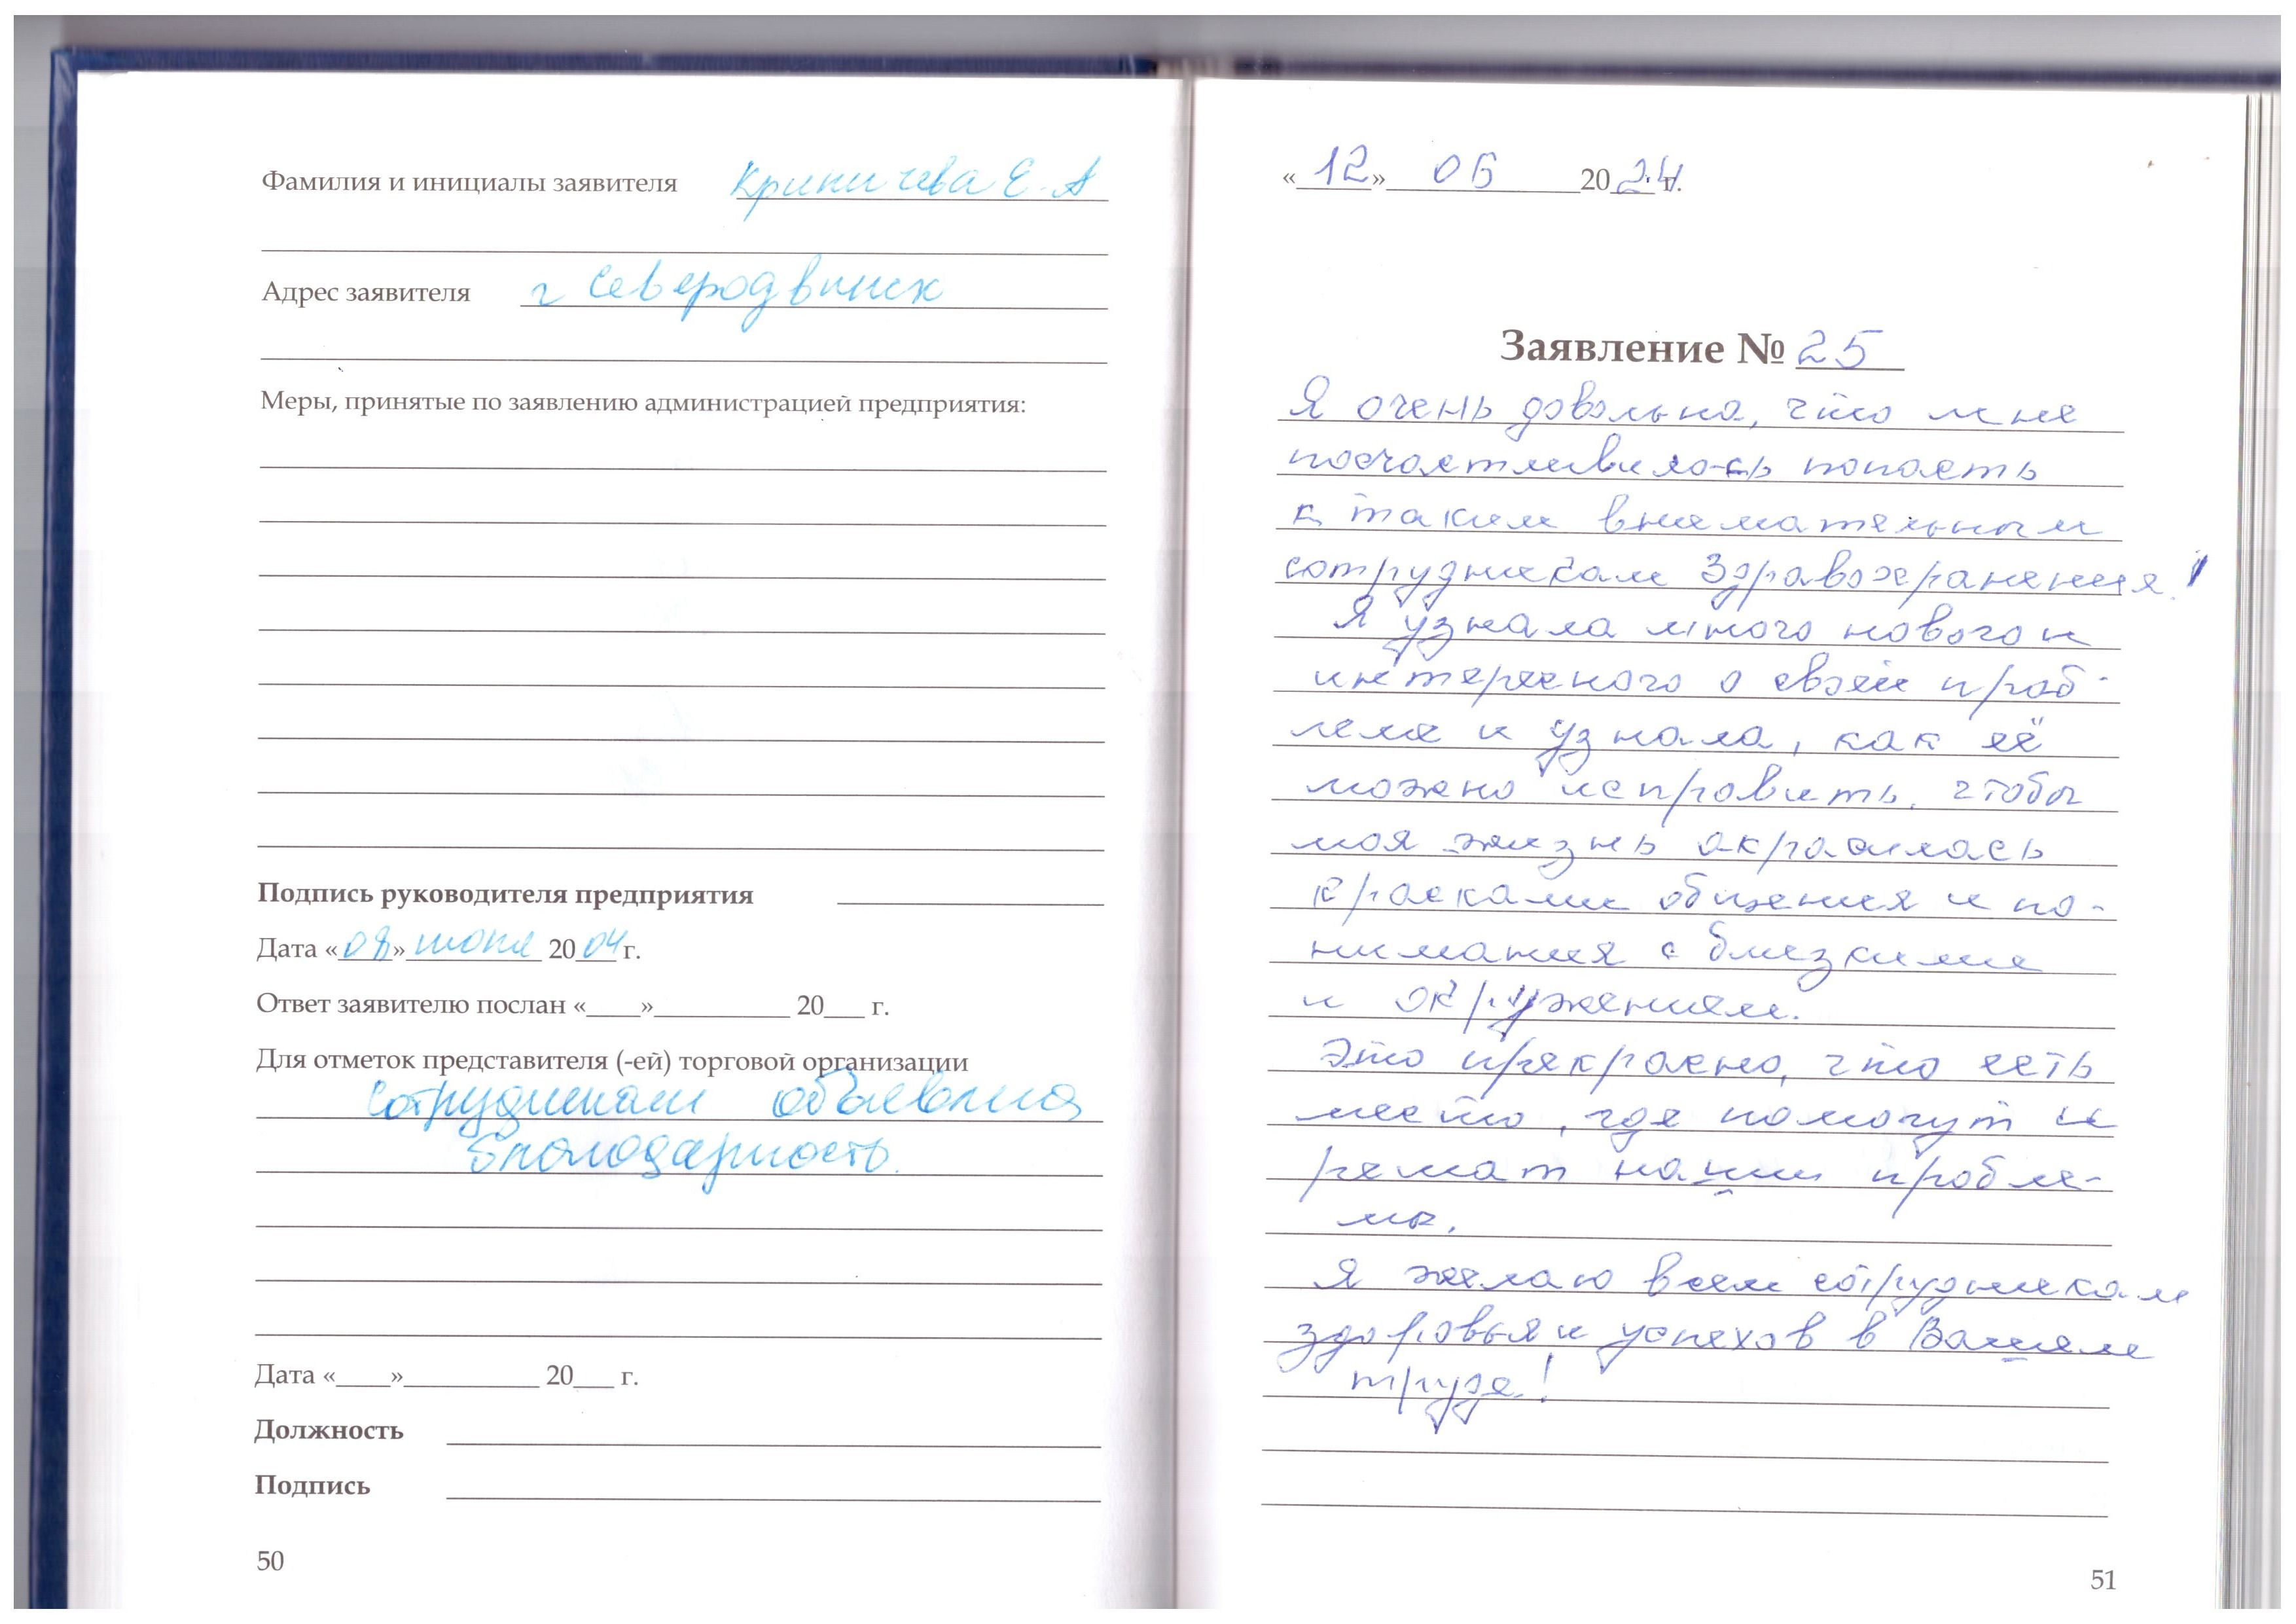 Фамилия и инициалы заявителя Криничева Е. А
Адрес заявителя г Северодвинск
Меры, принятые по заявлению администрацией предприятия:
Подпись руководителя предприятия
Дата «08» июня 2004 г.
Ответ заявителю послан «____»__________ 20___ г.
Для отметок представителя (-ей) торговой организации
Сотрудникам объявлена
благодарность.
Дата «____»__________ 20___ г.
Должность
Подпись
50
«12» 06 2024 г.
Заявление № 25
Я очень довольна, что мне
посчастливилось попасть
к таким внимательным
сотрудникам Здравоохранения!
Я узнала много нового и
интересного о своей проб-
леме и узнала, как её
можно исправить, чтобы
моя жизнь окрасилась
красками общения и по-
нимания с близкими
и окружением.
Это прекрасно, что есть
место, где помогут и
решат наши пробле-
мы.
Я желаю всем сотрудникам
здоровья и успехов в Вашем
труде!
51